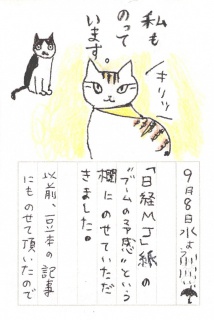 私も
のって
います。
キリッ
9月8日水よう
「日経MJ」紙の
"ブームの予感"という
欄にのせていただ
きました。
以前、豆本の記事
にものせて頂いたので